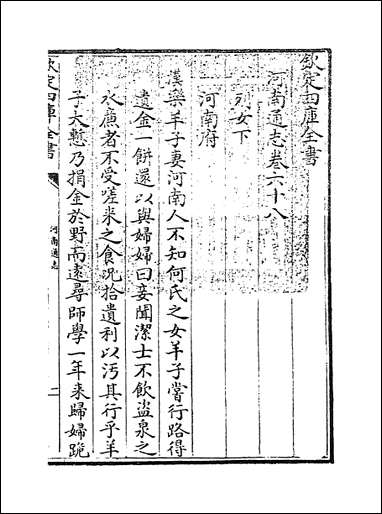 欽定四庫全書
河南通志卷六十八
列女下
河南府
漢樂羊子妻河南人不知何氏之女羊子嘗行路得
遺金一餅還以與婦婦曰妾聞潔士不飲盜泉之
水廉者不受嗟來之食況拾遺利以汚其行乎羊
子大慙乃捐金於野而遠尋師學一年來歸婦跪
欽定四庫全書
河南通志